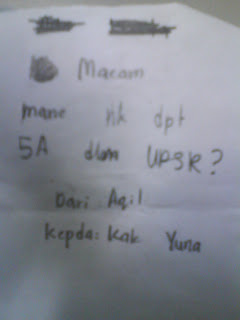 Macam
mane nk dpt
5A dlm UPSR?
Dari: Aqil
kepda: Kak Yuna